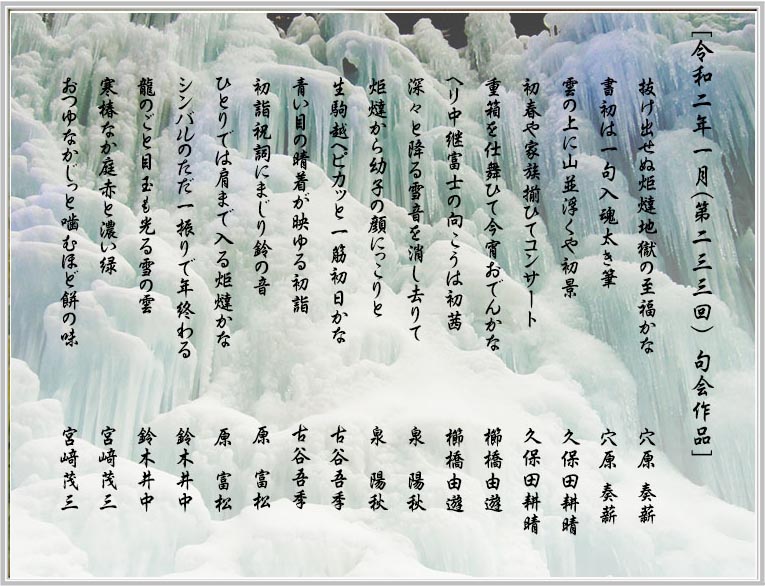 ［令和二年一月（第二三三回）句会作品］
抜け出せぬ炬燵地獄の至福かな　穴原 奏薪
書初は一句入魂太き筆　穴原 奏薪
雲の上に山並浮くや初景　久保田耕晴
初春や家族揃ひてコンサート　久保田耕晴
重箱を仕舞ひて今宵おでんかな　櫛橋由遊
ヘリ中継富士の向こうは初茜　櫛橋由遊
深々と降る雪音を消し去りて　泉 陽秋
炬燵から幼子の顔にっこりと　泉 陽秋
生駒越へピカッと一筋初日かな　古谷吾季
青い目の晴着が映ゆる初詣　古谷吾季
初詣祝詞にまじり鈴の音　原 富松
ひとりでは肩まで入る炬燵かな　原 富松
シンバルのただ一振りで年終わる　鈴木井中
龍のごと目玉も光る雪の雲　鈴木井中
寒椿なか庭赤と濃い緑　宮﨑茂三
おつゆなかじっと噛むほど餅の味　宮﨑茂三